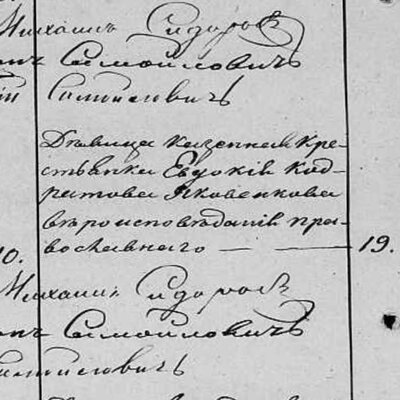 Михаилъ Сидоровъ
Самойловичъ
Самойловичъ
Дѣвица казенная кре-
стьянка Евдокія Код-
ратова Яковенкова
вѣроисповѣданія пра-
вославнаго — — 19.
10.
Михаилъ Сидоровъ
Самойловичъ
Самойловичъ